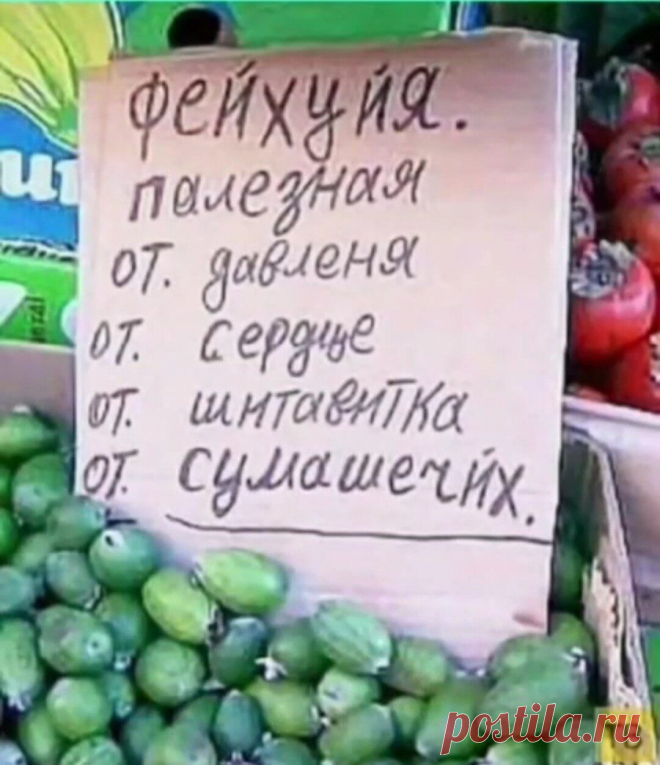 фейхуйя.
палезная
от. давленя
от. сердце
от. шитавитка
от. сумашечйх.
postila.ru